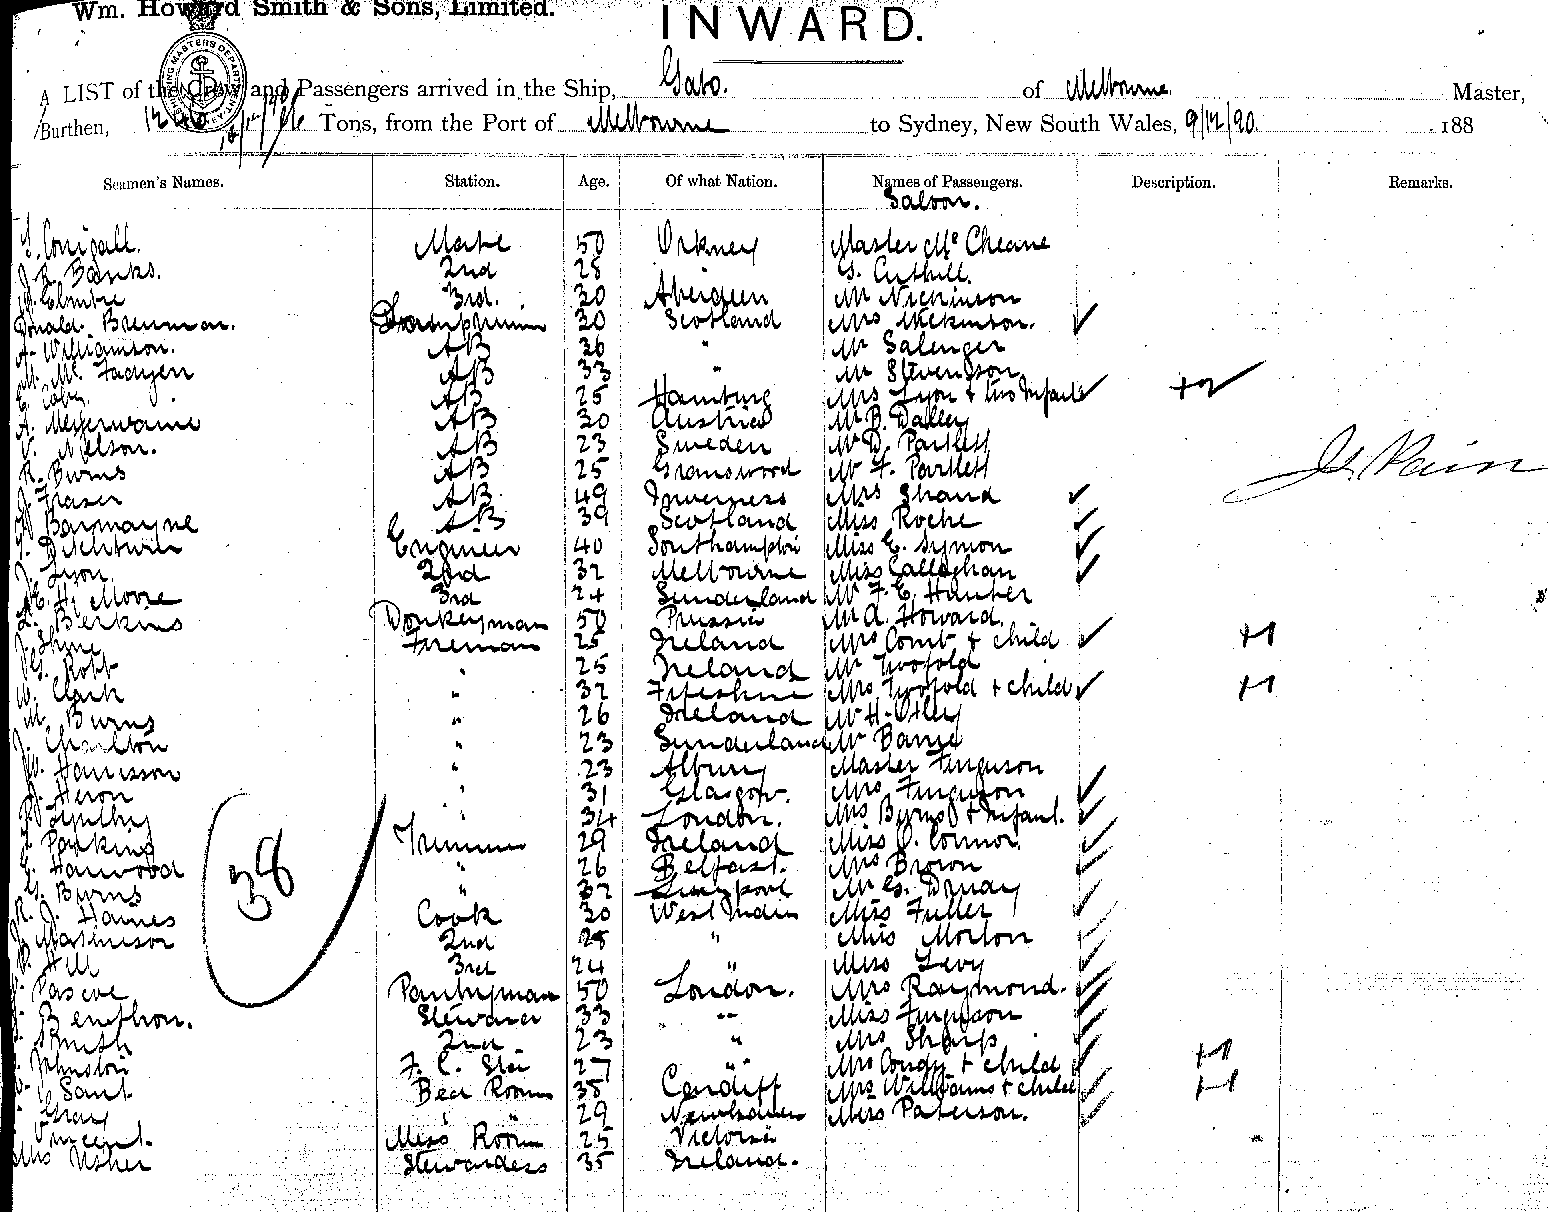 Wm. Howard Smith & Sons, Limited.
INWARD.
A LIST of the Crew and Passengers arrived in the Ship, Gabo. of Melbourne Master,
Burthen, Tons, from the Port of Melbourne to Sydney, New South Wales, 9/12/90. 188
Seamen's Names. Station. Age. Of what Nation. Names of Passengers. Description. Remarks.
Saloon.
Mate 50 Orkney Master Mc Cheane
J. R. Banks. 2nd 28 " G. Cuthill.
3rd. 30 Aberdeen Mr Nickinson
Donald Brennan. Lamptrimmer 30 Scotland Mrs Nickinson.
A. Williamson. AB 36 " Mr Salenger
M. Mc Fadyen AB 33 " Mr Stevenson
AB 25 Hamburg Mrs Lyon + two Infants
AB 30 Austria Mr B. Dalley
Nelson. AB 23 Sweden Mr D. Partlett
R. Burns AB 25 Mr F. Partlett
J. Fraser AB 49 Inverness Mrs Shand
AB 39 Scotland Miss Roche
Engineer 40 Southampton Miss E. Symon
J. Lyon 2nd 32 Melbourne Miss Callaghan
H. Moore 3rd 24 Sunderland Mr F. E. Hunter
Perkins Donkeyman 50 Prussia Mr A. Howard.
J. Shine Fireman 25 Ireland Mrs Comb + child
G. Robb " 25 Ireland Mr Twofold
W. Clark " 32 Fifeshire Mrs Twofold + child
M. Burns " 26 Ireland Mr H. Otley
J. Charlton " 23 Sunderland Mr
Harrisson " 23 Albury Master Ferguson
Heron " 31 Glasgow. Mrs Ferguson
" 34 London. Mrs Byrns + Infant.
Parkins Trimmer 29 Ireland Miss O. Connor.
Harwood " 26 Belfast. Mrs Brown
G. Burns " 32 Liverpool Mr G. Druay
J. Haines Cook 30 West Indies Miss Fuller
Mathieson 2nd 28 " Miss Morton
Hill 3rd 24 " Miss Levy
Pascoe Pantryman 50 London. Mrs Raymond.
Benthon. Steward 33 " Miss Ferguson
Smith 2nd 23 " Mrs Sharp
Johnston F. C. Ste 27 " Mrs Condy + child
Sant Bed Room 38 Cardiff Mrs Williams + child
Gray " " 29 Newhaven Miss Paterson.
Vincent. Mess Room 25 Victoria
Mrs Usher Stewardess 35 Ireland.
38